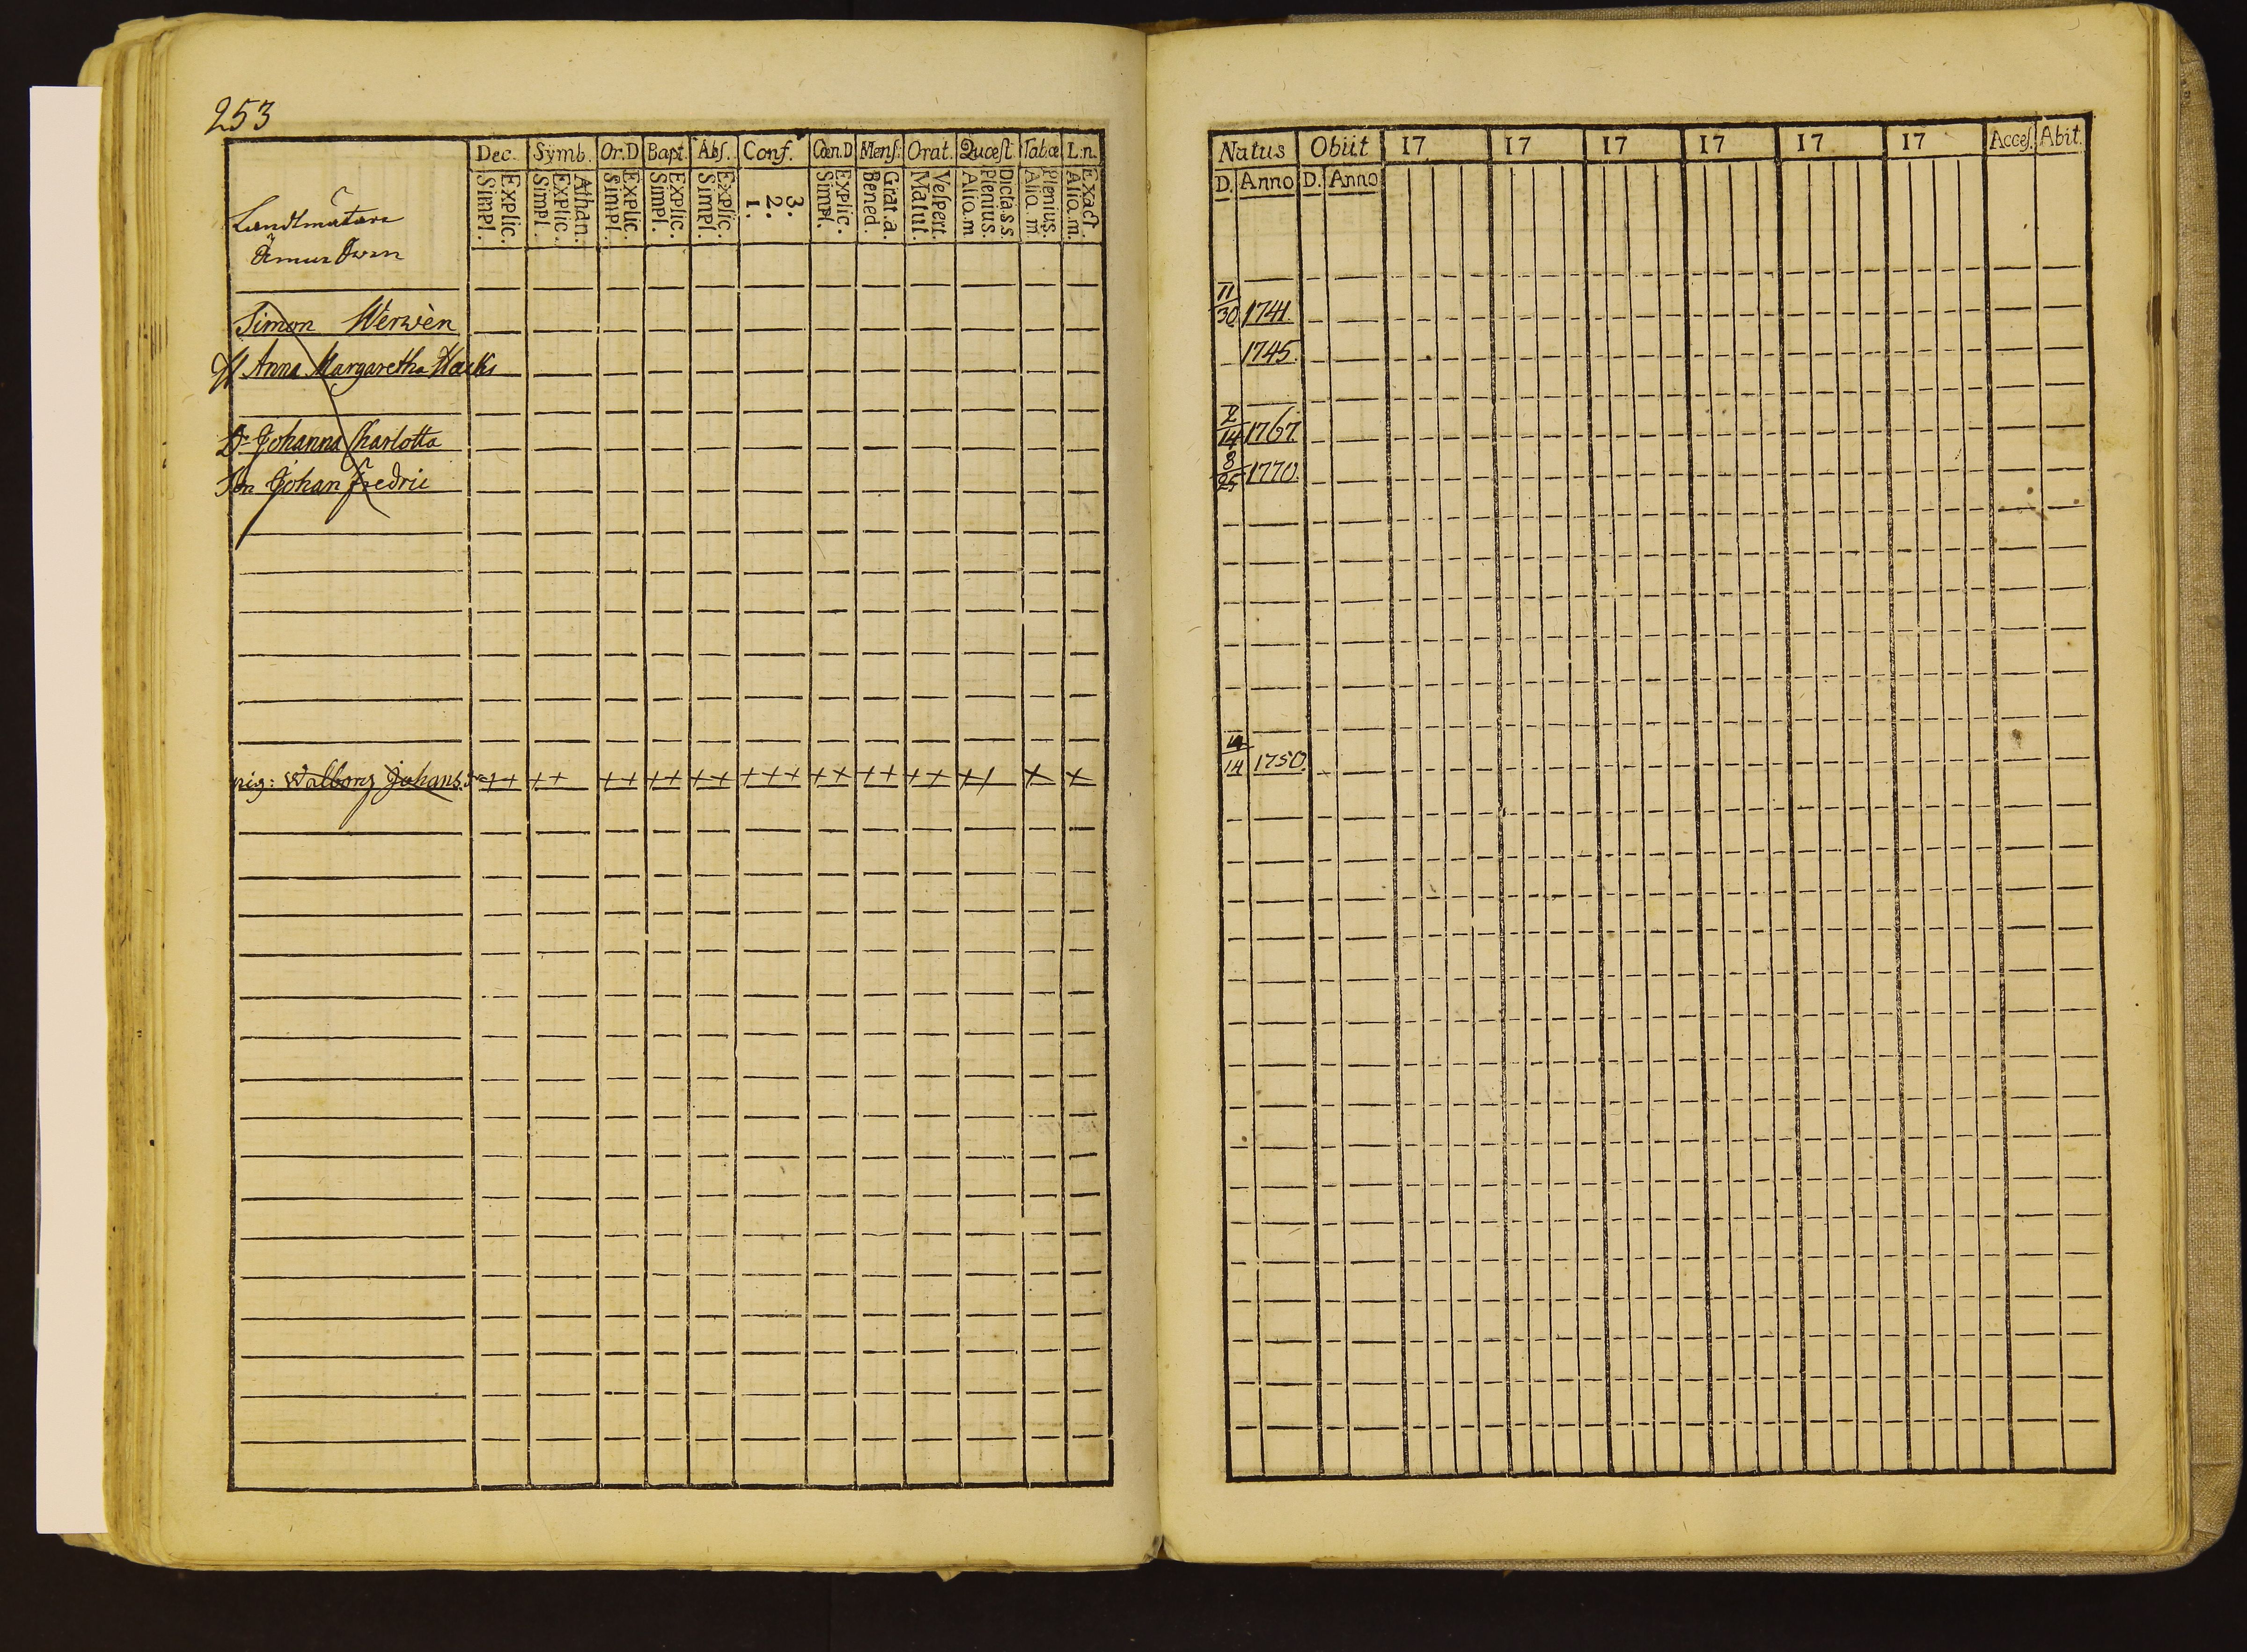 253
Dec. Symb. Or.D Bapt. Abs. Conf. Cœn.D Mens. Orat. Quæst. Tabæ L.n.
Simpl. Explic. Simpl. Explic. Athan. Simpl. Explic. Simpl. Explic. Simpl. Explic. 1. 2. 3. Simpl. Explic. Bened. Grat.a. Matut. Vespert. Alio.m Plenius. Dicta.s.s. Alio m Plenius. Alio.m. Exact.
Landtmätare
Simon Werwèn
H Anna Margaretha
Dr Johanna Charlotta
Son Johan Fredric
pig: Walborg Johans.dr ++ ++ ++ ++ ++ +++ ++ ++ ++ ++ + +
Natus Obiit 17 17 17 17 17 17 Acces. Abit.
D. Anno D. Anno
11/30 1741.
1745.
2/14 1767.
8/25 1770.
14 1750.